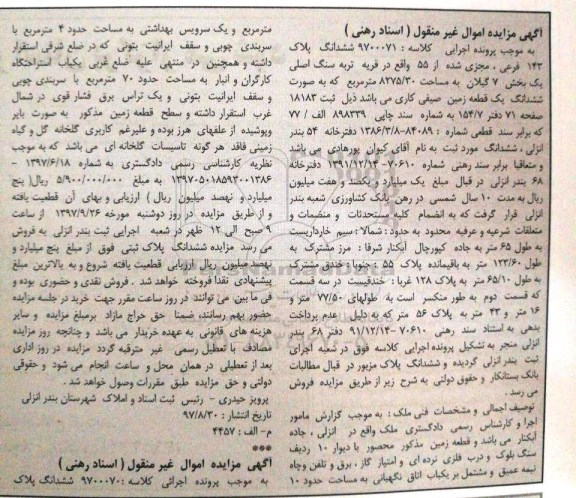 آگهی مزایده اموال غیر منقول ( اسناد رهنی )
به موجب پرونده اجرایی کلاسه : ۹۷۰۰۰۷۱ ششدانگ پلاک
۱۴۳ فرعی ، مجزی شده از ۵۵ واقع در قریه تربه سنگ اصلی
یک بخش ۷ گیلان به مساحت ۸۲۷۵/۳۰ مترمربع که به صورت
ششدانگ یک قطعه زمین صیفی کاری می باشد ذیل ثبت ۱۸۱۸۳
صفحه ۷۱ دفتر ۱۵۴/۷ به شماره سند چاپی ۸۹۸۳۳۹ الف / ۷۷
که برابر سند قطعی شماره : ۸۴۰۸۹-۱۳۸۶/۳/۸ دفترخانه ۵۴ بندر
انزلی ، ششدانگ مورد ثبت به نام آقای کیوان پورهادی می باشد
و متعاقبا برابر سند رهنی شماره ۷۰۶۱۰-۱۳۹۱/۱۲/۱۴ دفترخانه
۶۸ بندر انزلی در قبال مبلغ یک میلیارد و یکصد و هفت میلیون
ریال به مدت ۱۰ سال شمسی در رهن بانک کشاورزی شعبه بندر
انزلی قرار گرفت که به انضمام کلیه مستحدثات و منضمات و
متعلقات شرعیه و عرفیه محدود به حدود : شمالا : سیم خارداریست
به طول ۶۵ متر به جاده کپورچال آبکنار شرقا : مرز مشترک به
طول ۱۲۳/۶۰ متر به باقیمانده پلاک ۵۵ : جنوبا : خندق مشترک
به طول ۶۵/۱۰ متر به پلاک ۱۲۸ غربا : خندقیست در سه قسمت
که قسمت دوم به طور منکسر است به طولهای ۷۷/۵۰ متر و
۱۶ متر و ۴۳ متر به پلاک ۵۶ متر که به دلیل عدم پرداخت
بدهی به استناد سند رهنی ۷۰۶۱۰-۹۱/۱۲/۱۴ دفتر ۶۸ بندر
انزلی منجر به تشکیل پرونده اجرایی کلاسه فوق در شعبه اجرای
ثبت بندر انزلی گردیده و ششدانگ پلاک مزبور در قبال مطالبات
بانک بستانکار و حقوق دولتی به شرح زیر از طریق مزایده فروش
می رسد .
توصیف اجمالی و مشخصات فنی ملک : به موجب گزارش مامور
اجرا و کارشناس رسمی دادگستری ملک واقع در انزلی ، جاده
آبکنار می باشد و قطعه زمین مذکور محصور با دیوار ۱۰ ردیف
سنگ بلوک و درب فلزی نرده ای و امتیاز گاز ، برق و تلفن وچاه
نیمه عمیق و مشتمل بر یکباب اتاق نگهبانی به مساحت حدود ۱۰
مترمربع و یک سرویس بهداشتی به مساحت حدود ۴ مترمربع با
سربندی چوبی و سقف ایرانیت بتونی که در ضلع شرقی استقرار
داشته و همچنین در منتهی علیه ضلع غربی یکباب استراحتگاه
کارگران و انبار به مساحت حدود ۷۰ مترمربع با سربندی چوبی
و سقف ایرانیت بتونی و یک تراس برق فشار قوی در شمال
غرب استقرار داشته و سطح قطعه زمین مذکور به صورت بایر
وپوشیده از علفهای هرز بوده و علیرغم کاربری گلخانه گل و گیاه
زمینی فاقد هر گونه تاسیسات گلخانه ای می باشد که به موجب
نظریه کارشناسی رسمی دادگستری به شماره ۱۳۹۷/۶/۱۸ -
۱۳۹۷۰۵۰۱۸۵۹۳۰۰۱۳۸۶ به مبلغ ۵/۹۰۰/۰۰۰/۰۰۰ ریال( پنج
میلیارد و نهصد میلیون ریال ) ارزیابی و بهای آن قطعیت یافته
و از طریق مزایده در روز دوشنبه مورخه ۱۳۹۷/۹/۲۶ از ساعت
۹ صبح الی ۱۲ ظهر در شعبه اجرایی ثبت بندر انزلی به فروش
می رسد مزایده ششدانگ پلاک ثبتی فوق از مبلغ پنج میلیارد و
نهصد میلیون ریال ارزیابی قطعیت یافته شروع و به بالاترین مبلغ
پیشنهادی نقدا فروخته خواهد شد . فروش نقدی و حضوری بوده و
فی مابین می توانند در روز ساعت مقرر جهت خرید در جلسه مزایده
حضور بهم رسانند، ضمنا حق حراج مازاد برمبلغ مزایده و سایر
هزینه های قانونی به عهده خریدار می باشد و چنانچه روز مزایده
مصادف با تعطیل رسمی غیر مترقبه گردد مزایده در روز اداری
بعد از تعطیلی در همان محل و ساعت انجام می شود و حقوقی
دولتی و حق مزایده طبق مقررات وصول خواهد شد .
پرویز حیدری – رئیس ثبت اسناد و املاک شهرستان بندر انزلی
تاریخ انتشار : ۹۷/۸/۳۰
م- الف : ۴۴۵۷
***
آگهی مزایده اموال غیر منقول ( اسناد رهنی )
به موجب پرونده اجرائی کلاسه : ۹۷۰۰۰۷۰ ششدانگ پلاک